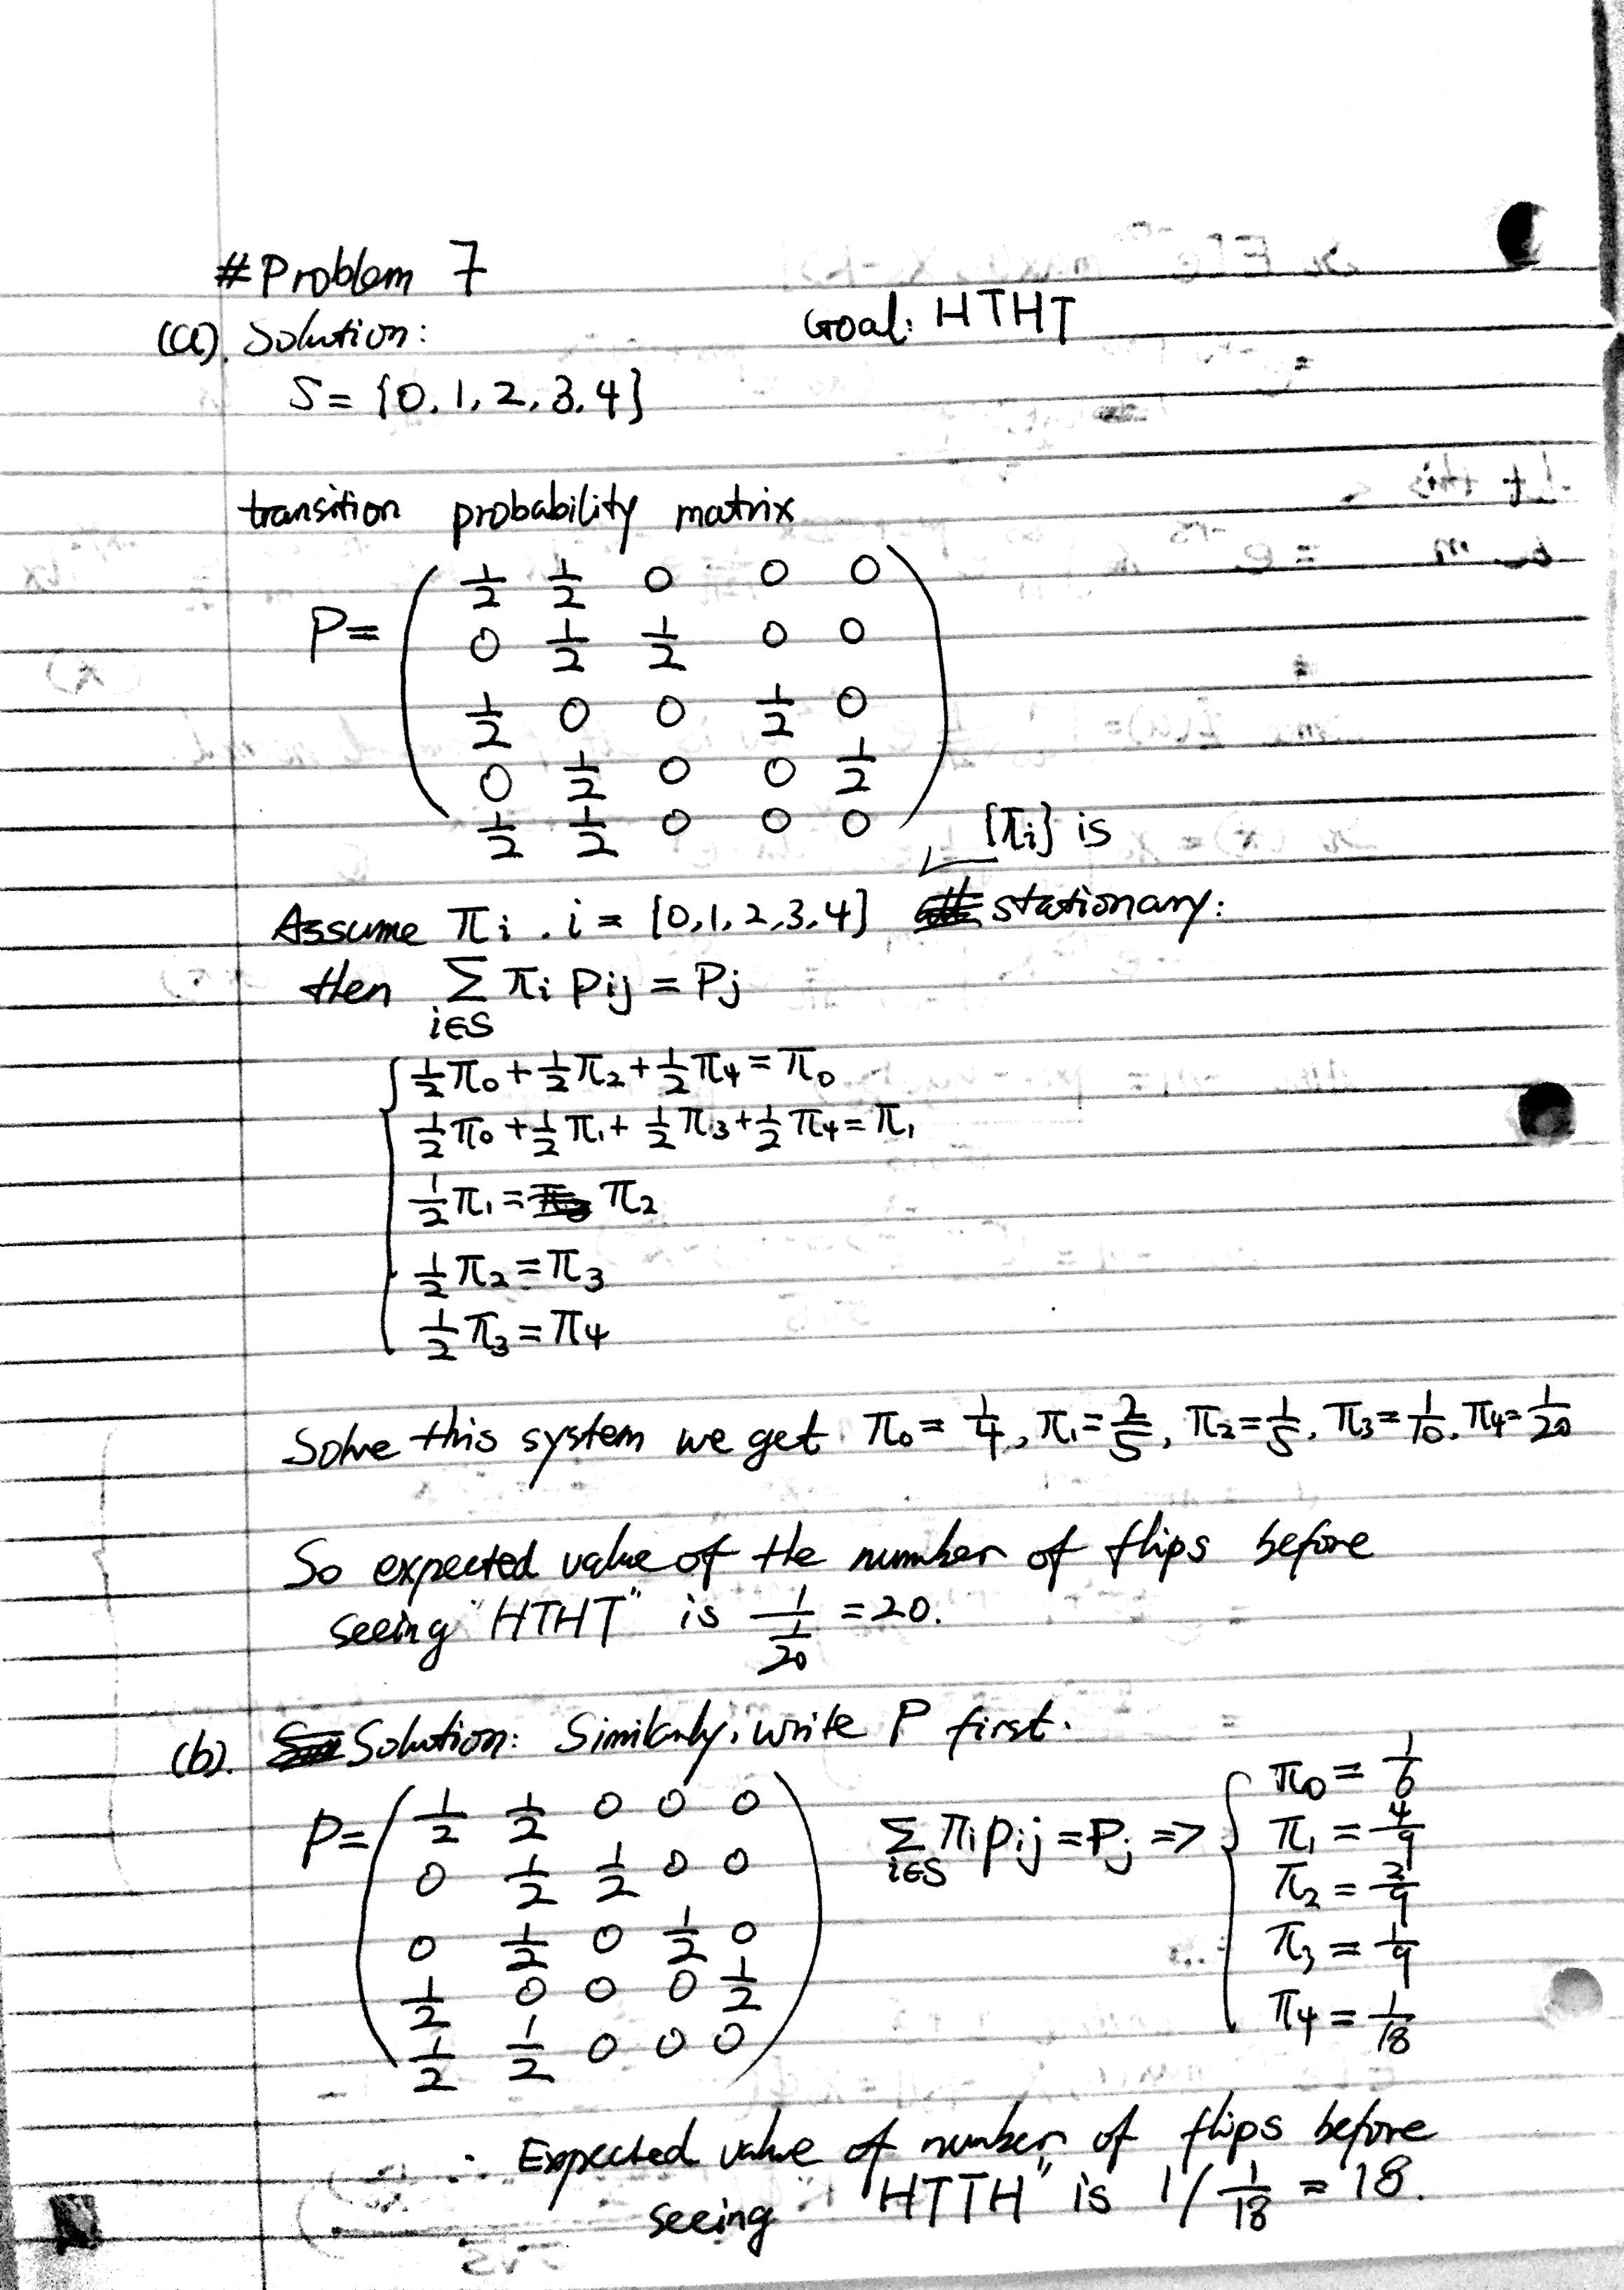 #Problem 7
(a). Solution:
Goal: HTHT
S = {0, 1, 2, 3, 4}
transition probability matrix
P = ( 1/2 1/2 0 0 0
0 1/2 1/2 0 0
1/2 0 0 1/2 0
0 1/2 0 0 1/2
1/2 1/2 0 0 0 )
{πi} is
Assume πi . i = {0,1,2,3,4} stationary:
then Σ πi Pij = Pj
i∈S
{ 1/2 π0 + 1/2 π2 + 1/2 π4 = π0
1/2 π0 + 1/2 π1 + 1/2 π3 + 1/2 π4 = π1
1/2 π1 = π2
1/2 π2 = π3
1/2 π3 = π4
Solve this system we get π0 = 1/4, π1 = 2/5, π2 = 1/5, π3 = 1/10, π4 = 1/20
So expected value of the number of flips before
seeing "HTHT" is 1/(1/20) = 20.
(b). Solution: Similarly, write P first.
P = ( 1/2 1/2 0 0 0
0 1/2 1/2 0 0
0 1/2 0 1/2 0
1/2 0 0 0 1/2
1/2 1/2 0 0 0 )
Σ πi Pij = Pj => { π0 = 1/6
i∈S
π1 = 4/9
π2 = 2/9
π3 = 1/9
π4 = 1/18
∴ Expected value of number of flips before
seeing "HTTH" is 1/ 1/18 = 18.